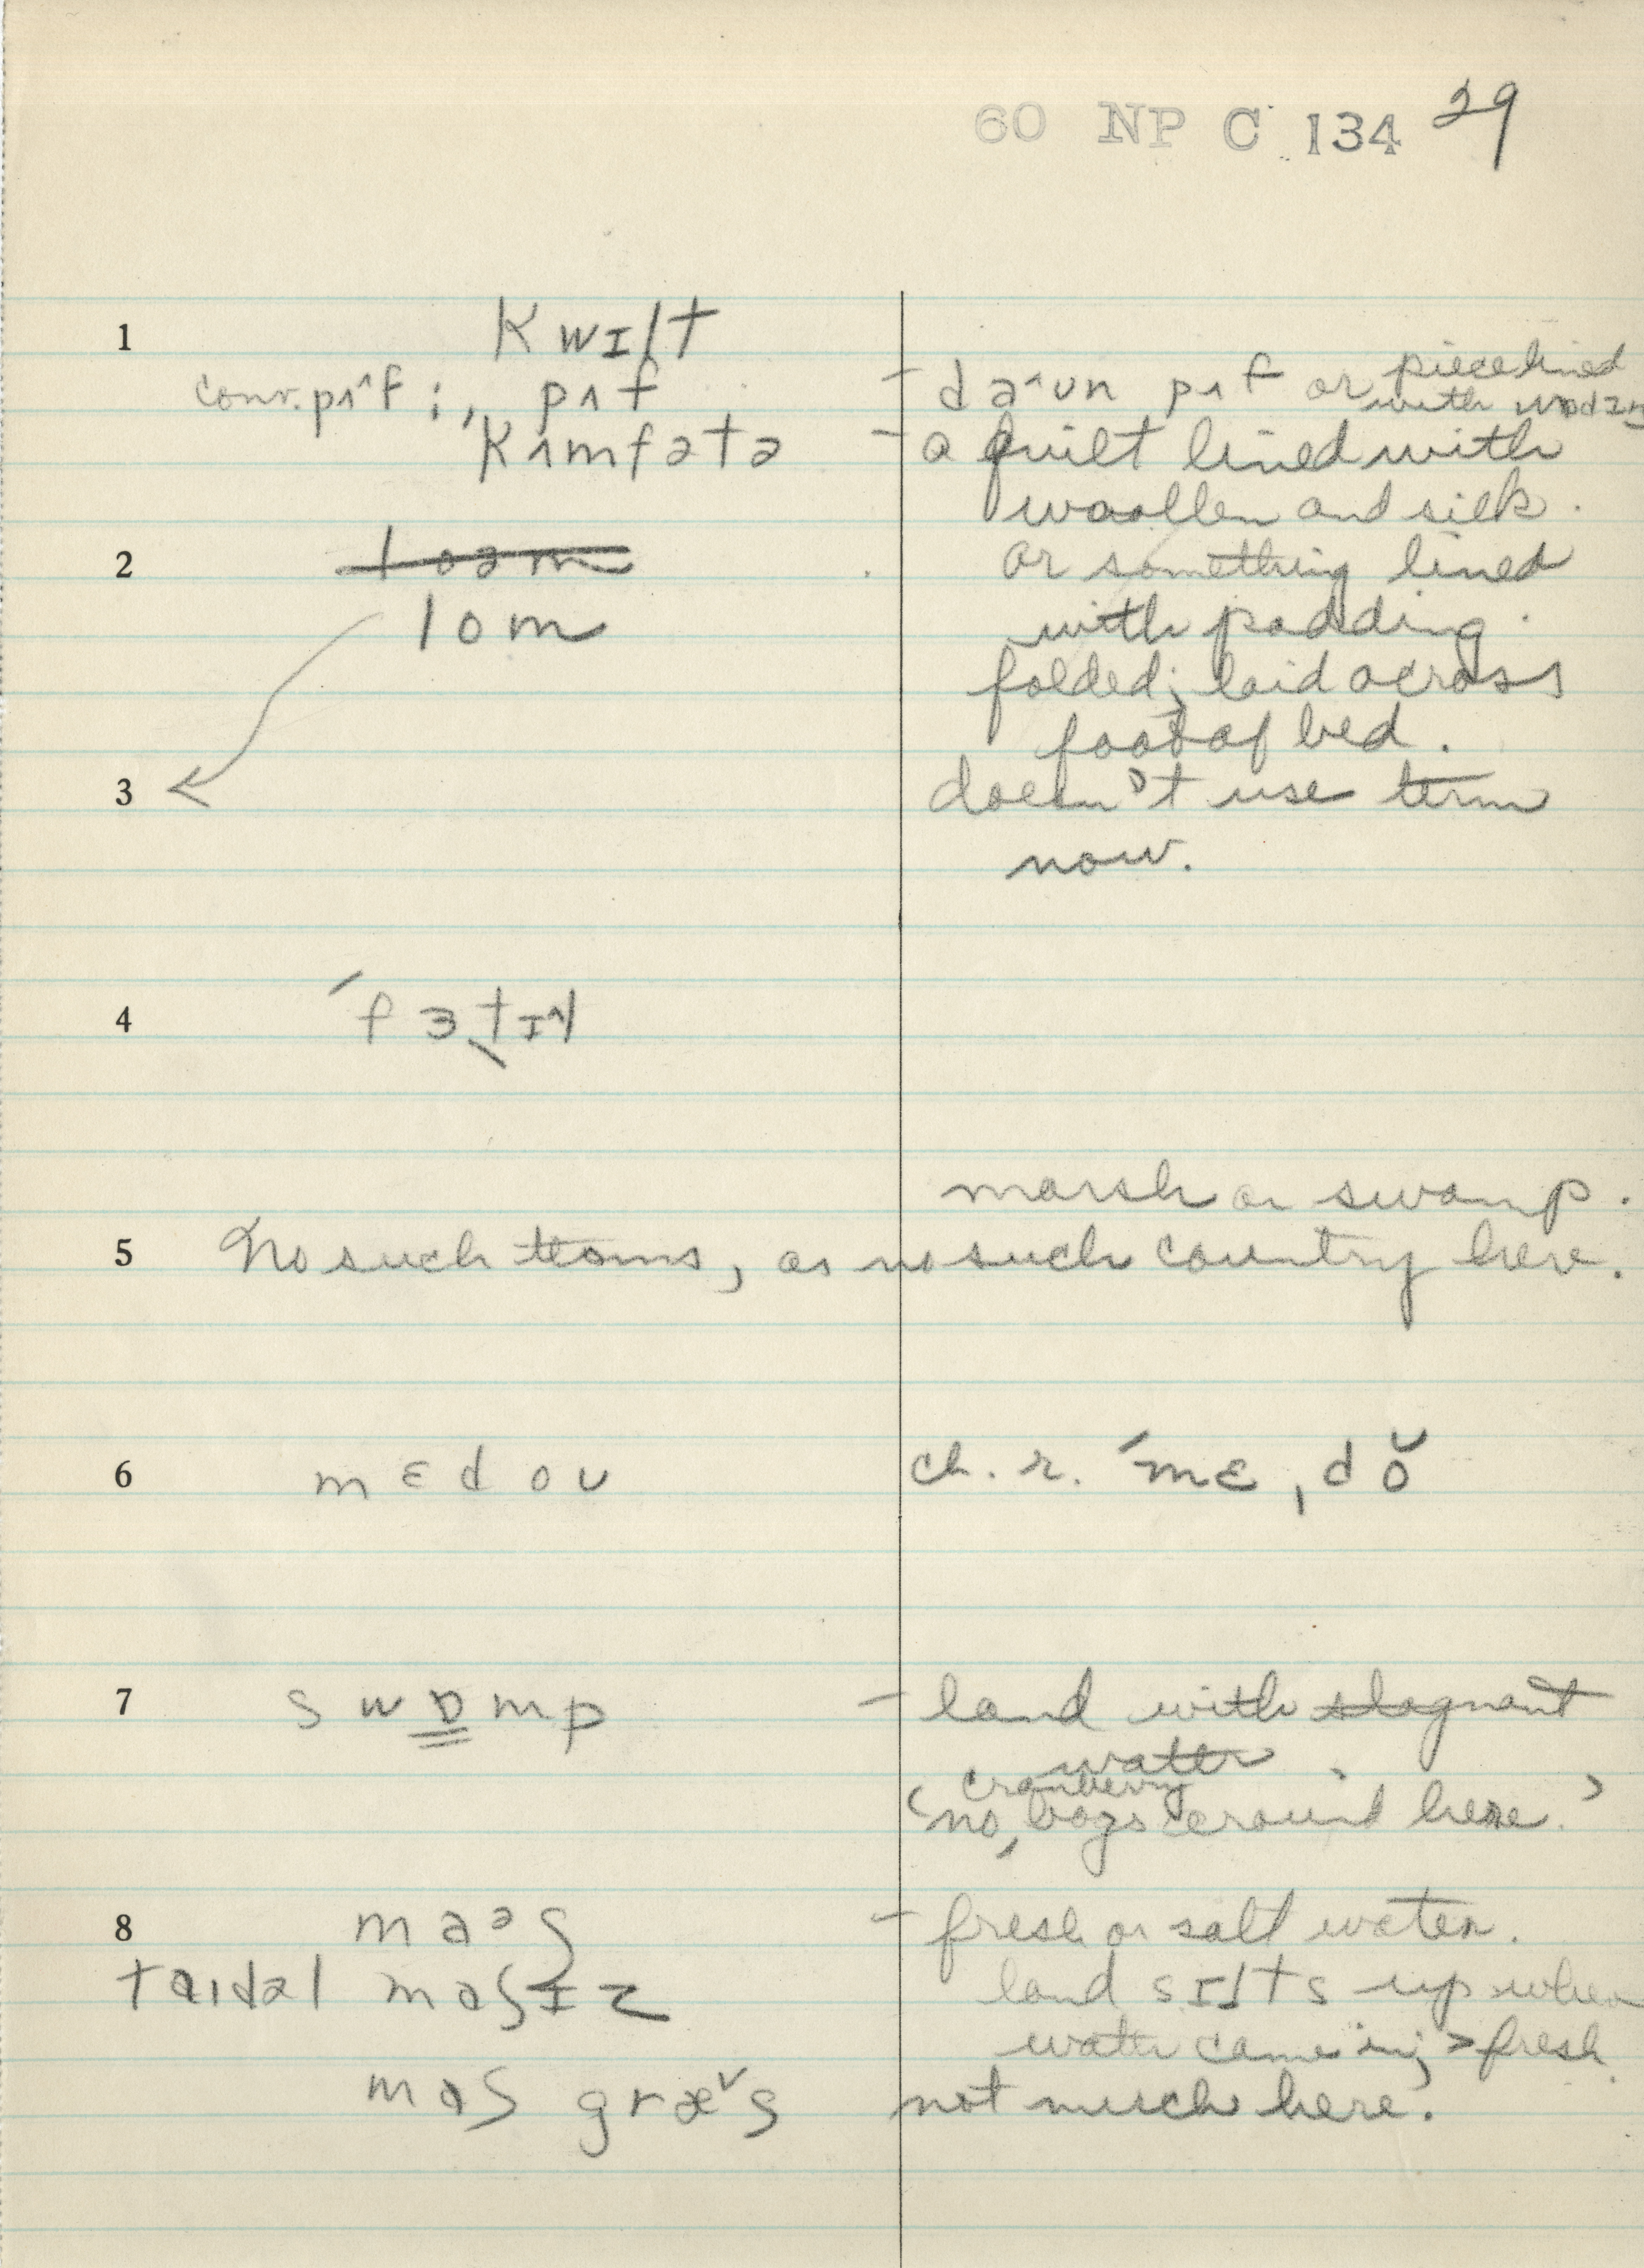 60 NP C 134 29
1 kwɪlt
conv. pʌ^f ; , pʌf - da^ʊn pʌf or piece lined with wadɪŋ
kʌmfətə - a quilt lined with
woollen and silk.
2 loəm or something lined
lom with padding.
folded; laid across
foot of bed.
3 doesn't use term
now.
4
marsh or swamp.
5 No such terms, as no such country here.
6 mɛdoʊ ch. r. ˈmɛˌdŏ
7 swɒmp - land with stagnant
water.
cranberry
'no, bogs around here.'
8 maəʃ - fresh or salt water.
taɪdəl maʃɪz land sɪlts up when
water come in; > fresh
maʃ græˇs not much here.